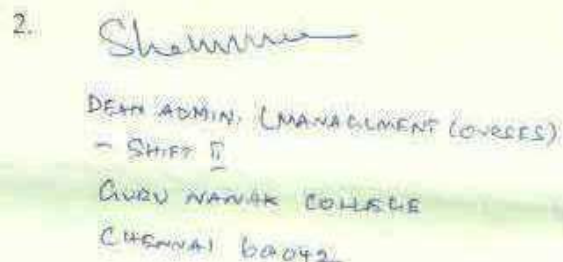 2.
DEAN ADMIN. (MANAGEMENT COURSES)
- SHIFT II
GURU NANAK COLLEGE
CHENNAI 600042